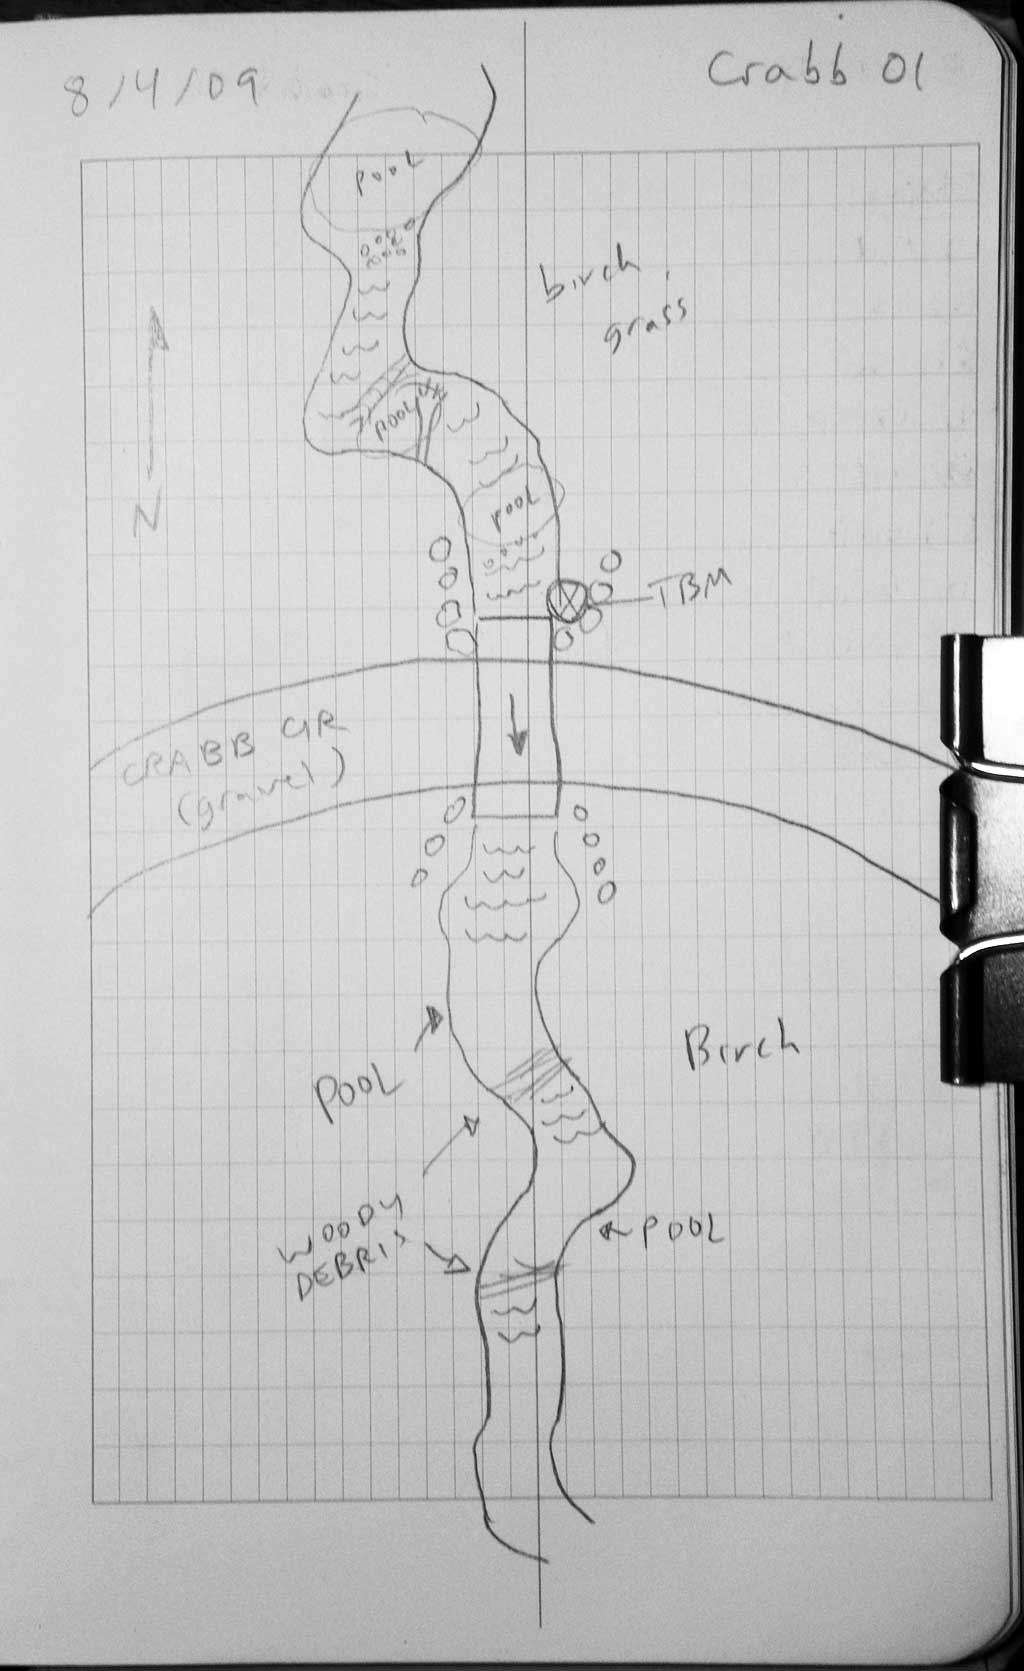 8/4/09
Crabb 01
POOL
birch,
grass
POOL
N
POOL
TBM
CRABB CIR
(gravel)
Birch
POOL
WOODY
DEBRIS
POOL